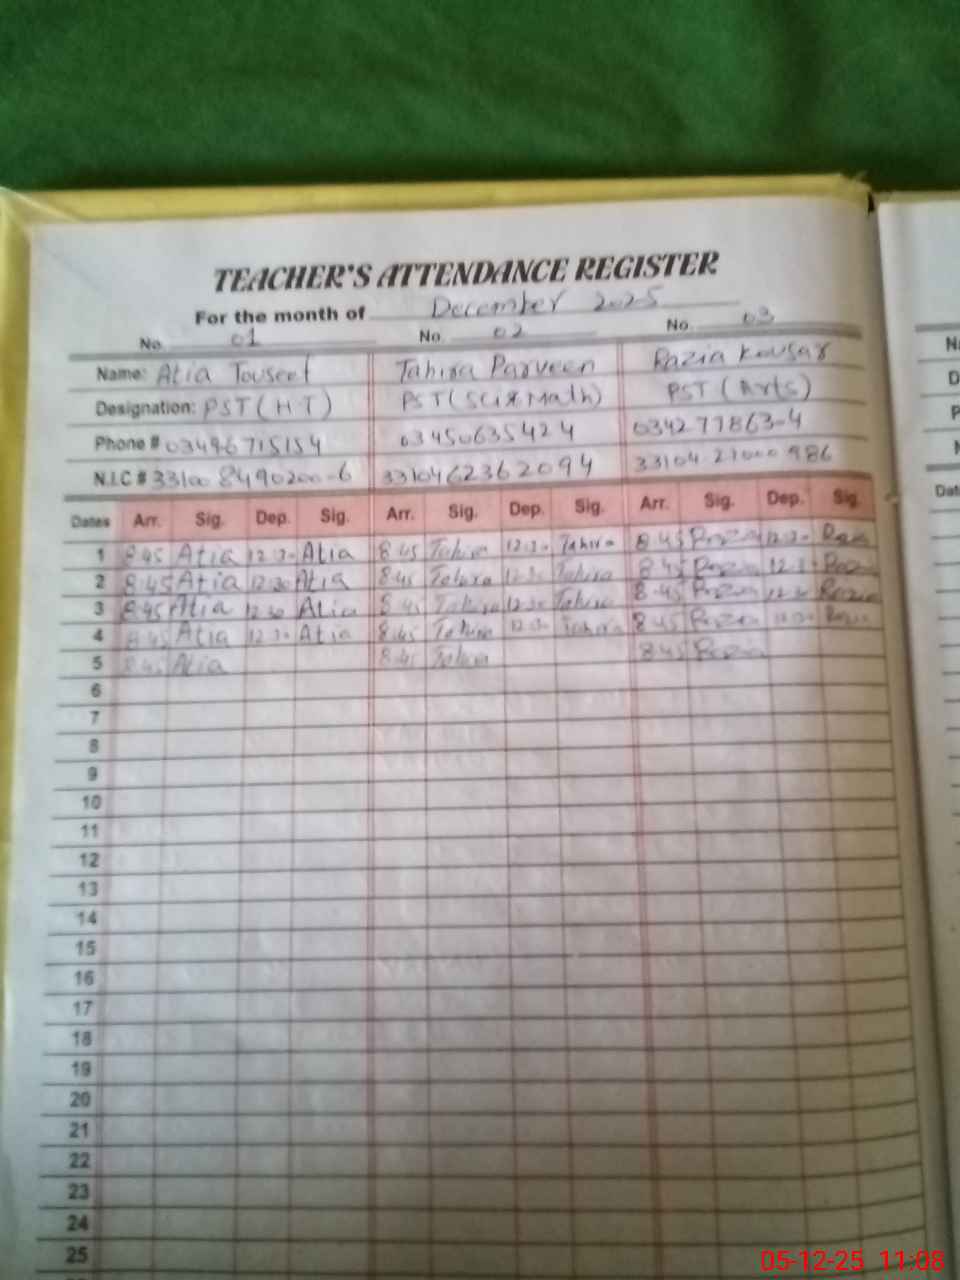 TEACHER'S ATTENDANCE REGISTER
For the month of December 2025
No. 01 No. 02 No. 03
Name: Atia Touseef Tahira Parveen Razia Kousar
Designation: PST (H T) PST (Sci & Math) PST (Arts)
Phone # 03496715154 03450635424 0342 77863-4
N.I.C # 33100 8490200-6 3310462362094 33104 21000 986
Dates Arr. Sig. Dep. Sig. Arr. Sig. Dep. Sig. Arr. Sig. Dep. Sig.
1 8 45 Atia 12.30 Atia 8 45 Tahira 12.30 Tahira 8 45 Razia 12.30 Razia
2 8:45 Atia 12.30 Atia 8 45 Tahira 12.30 Tahira 8 45 Razia 12.30 Razia
3 8:45 Atia 12.30 Atia 8 45 Tahira 12.30 Tahira 8.45 Razia 12.30 Razia
4 8:45 Atia 12.30 Atia 8:45 Tahira 12.30 Tahira 8:45 Razia 12.30 Razia
5 8:45 Atia 8:45 Tahira 8:45 Razia
6
7
8
9
10
11
12
13
14
15
16
17
18
19
20
21
22
23
24
25
05-12-25 11:08